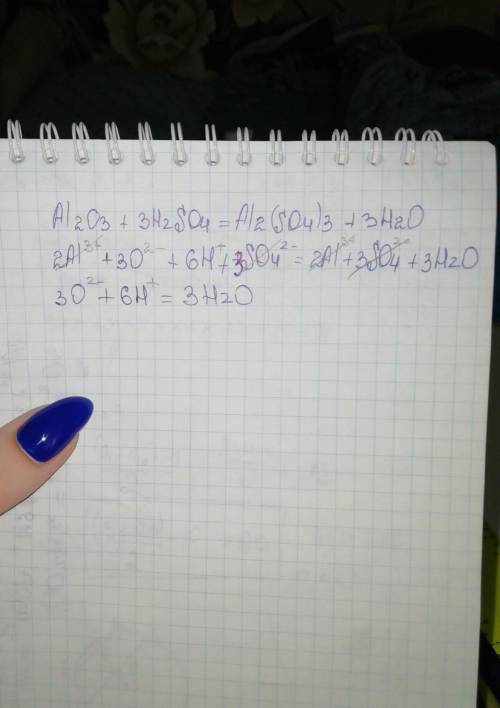 Al2O3 + 3H2SO4 = Al2(SO4)3 + 3H2O
2Al³⁺ + 3O²⁻ + 6H⁺ + 3SO4²⁻ = 2Al³⁺ + 3SO4²⁻ + 3H2O
3O²⁻ + 6H⁺ = 3H2O